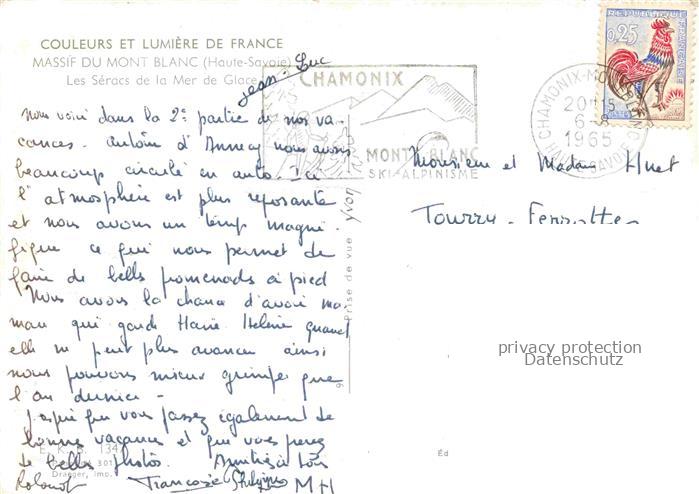 COULEURS ET LUMIÈRE DE FRANCE
MASSIF DU MONT BLANC (Haute-Savoie)
Les Séracs de la Mer de Glace
Jean-Luc
Nous voici dans la 2e partie de nos va-
cances. autour d'Annecy nous avons
beaucoup circulé en auto. Ici
l'atmosphère est plus reposante
et nous avons un temps magni-
fique ce qui nous permet de
faire de belles promenades à pied
Nous avons la chance d'avoir ma-
man qui garde Marie Hélène quand
elle ne peut plus avancer ainsi
nous pouvons mieux grimper que
l'an dernier -
J'espère que vous passez également de
bonnes vacances et que vous ferez
de belles photos. Amitiés à tous
Roland Françoise MH
Draeger, Imp.
Prise de vue Yvon
Éd
CHAMONIX
MONT-BLANC
SKI-ALPINISME
CHAMONIX-MONT-BLANC
20H15
6-8
1965
HTE-SAVOIE
0,25
Monsieur et Madame Huet
Tourry - Ferrottes
privacy protection
Datenschutz